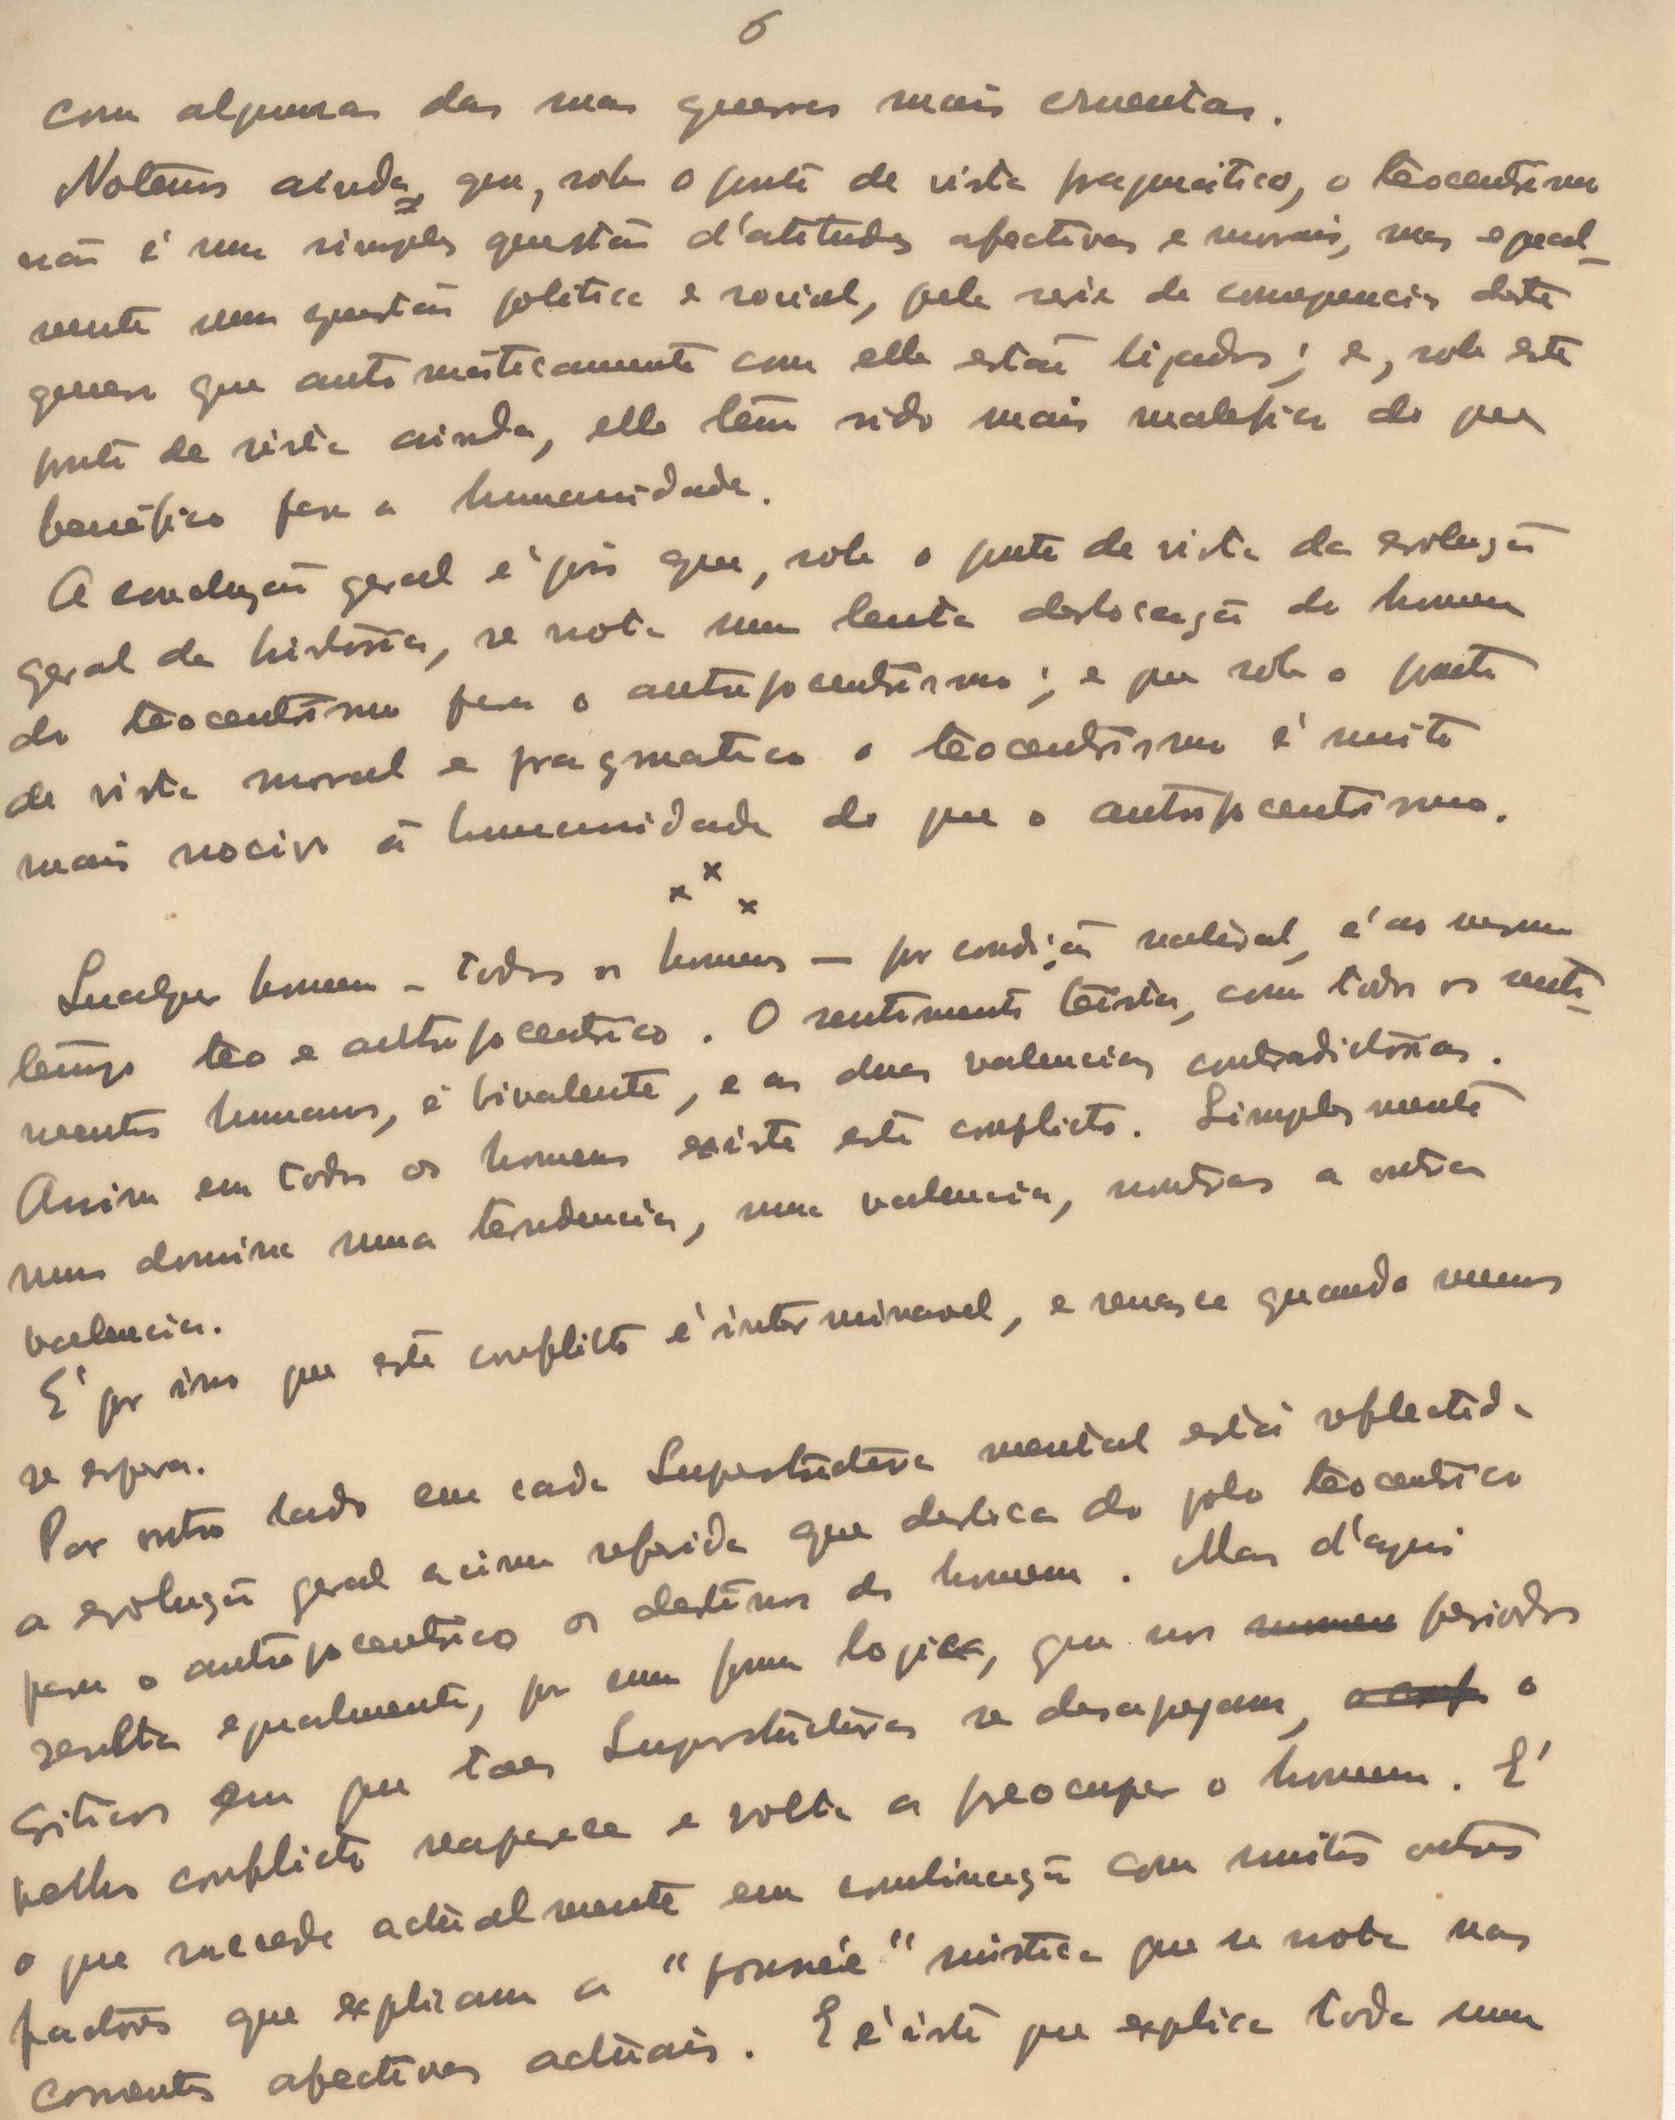 6
com algumas das suas guerras mais cruentas.
Notemos ainda, que, sob o ponto de vista pragmático, o teocentrismo
não é uma simples questão d'atitudes afectivas e morais, mas egual-
mente uma questão politica e social, pela serie de consequencias deste
genero que automáticamente com elle estão ligados; e, sob este
ponto de vista ainda, elle têm sido mais malefico do que
benéfico para a humanidade.
A conclusão geral é pois que, sob o ponto de vista da evolução
geral da história, se nota uma lenta deslocação do homem
do teocentrismo para o antropocentrismo; e que sob o ponto
de vista moral e pragmatico o teocentrismo é muito
mais nocivo á humanidade do que o antropocentrismo.
x x x
Qualquer homem - todos os homens - por condição natural, é ao mesmo
tempo teo e antropocentrico. O sentimento teista, com todos os senti-
mentos humanos, é bivalente, e as duas valencias contradictórias.
Assim em todos os homens existe este conflicto. Simplesmente
nuns domina uma tendencia, uma valencia, noutras a outra
valencia.
E' por isso que este conflicto é interminavel, e renasce quando menos
se espera.
Por outro lado em cada Superstructura mental está reflectida
a evolução geral acima referida que desloca do polo teocentrico
para o antropocentrico os destinos do homem. Mas d'aqui
resulta egualmente, por uma forma logica, que nos periodos
criticos em que taes Superstructuras se desagregam, o
velho conflicto reaparece e volta a preocupar o homem. E'
o que succede actualmente em combinação com muitos outros
factores que explicam a "poussée" mistica que se nota nas
correntes afectivas actuais. E é isto que explica toda uma